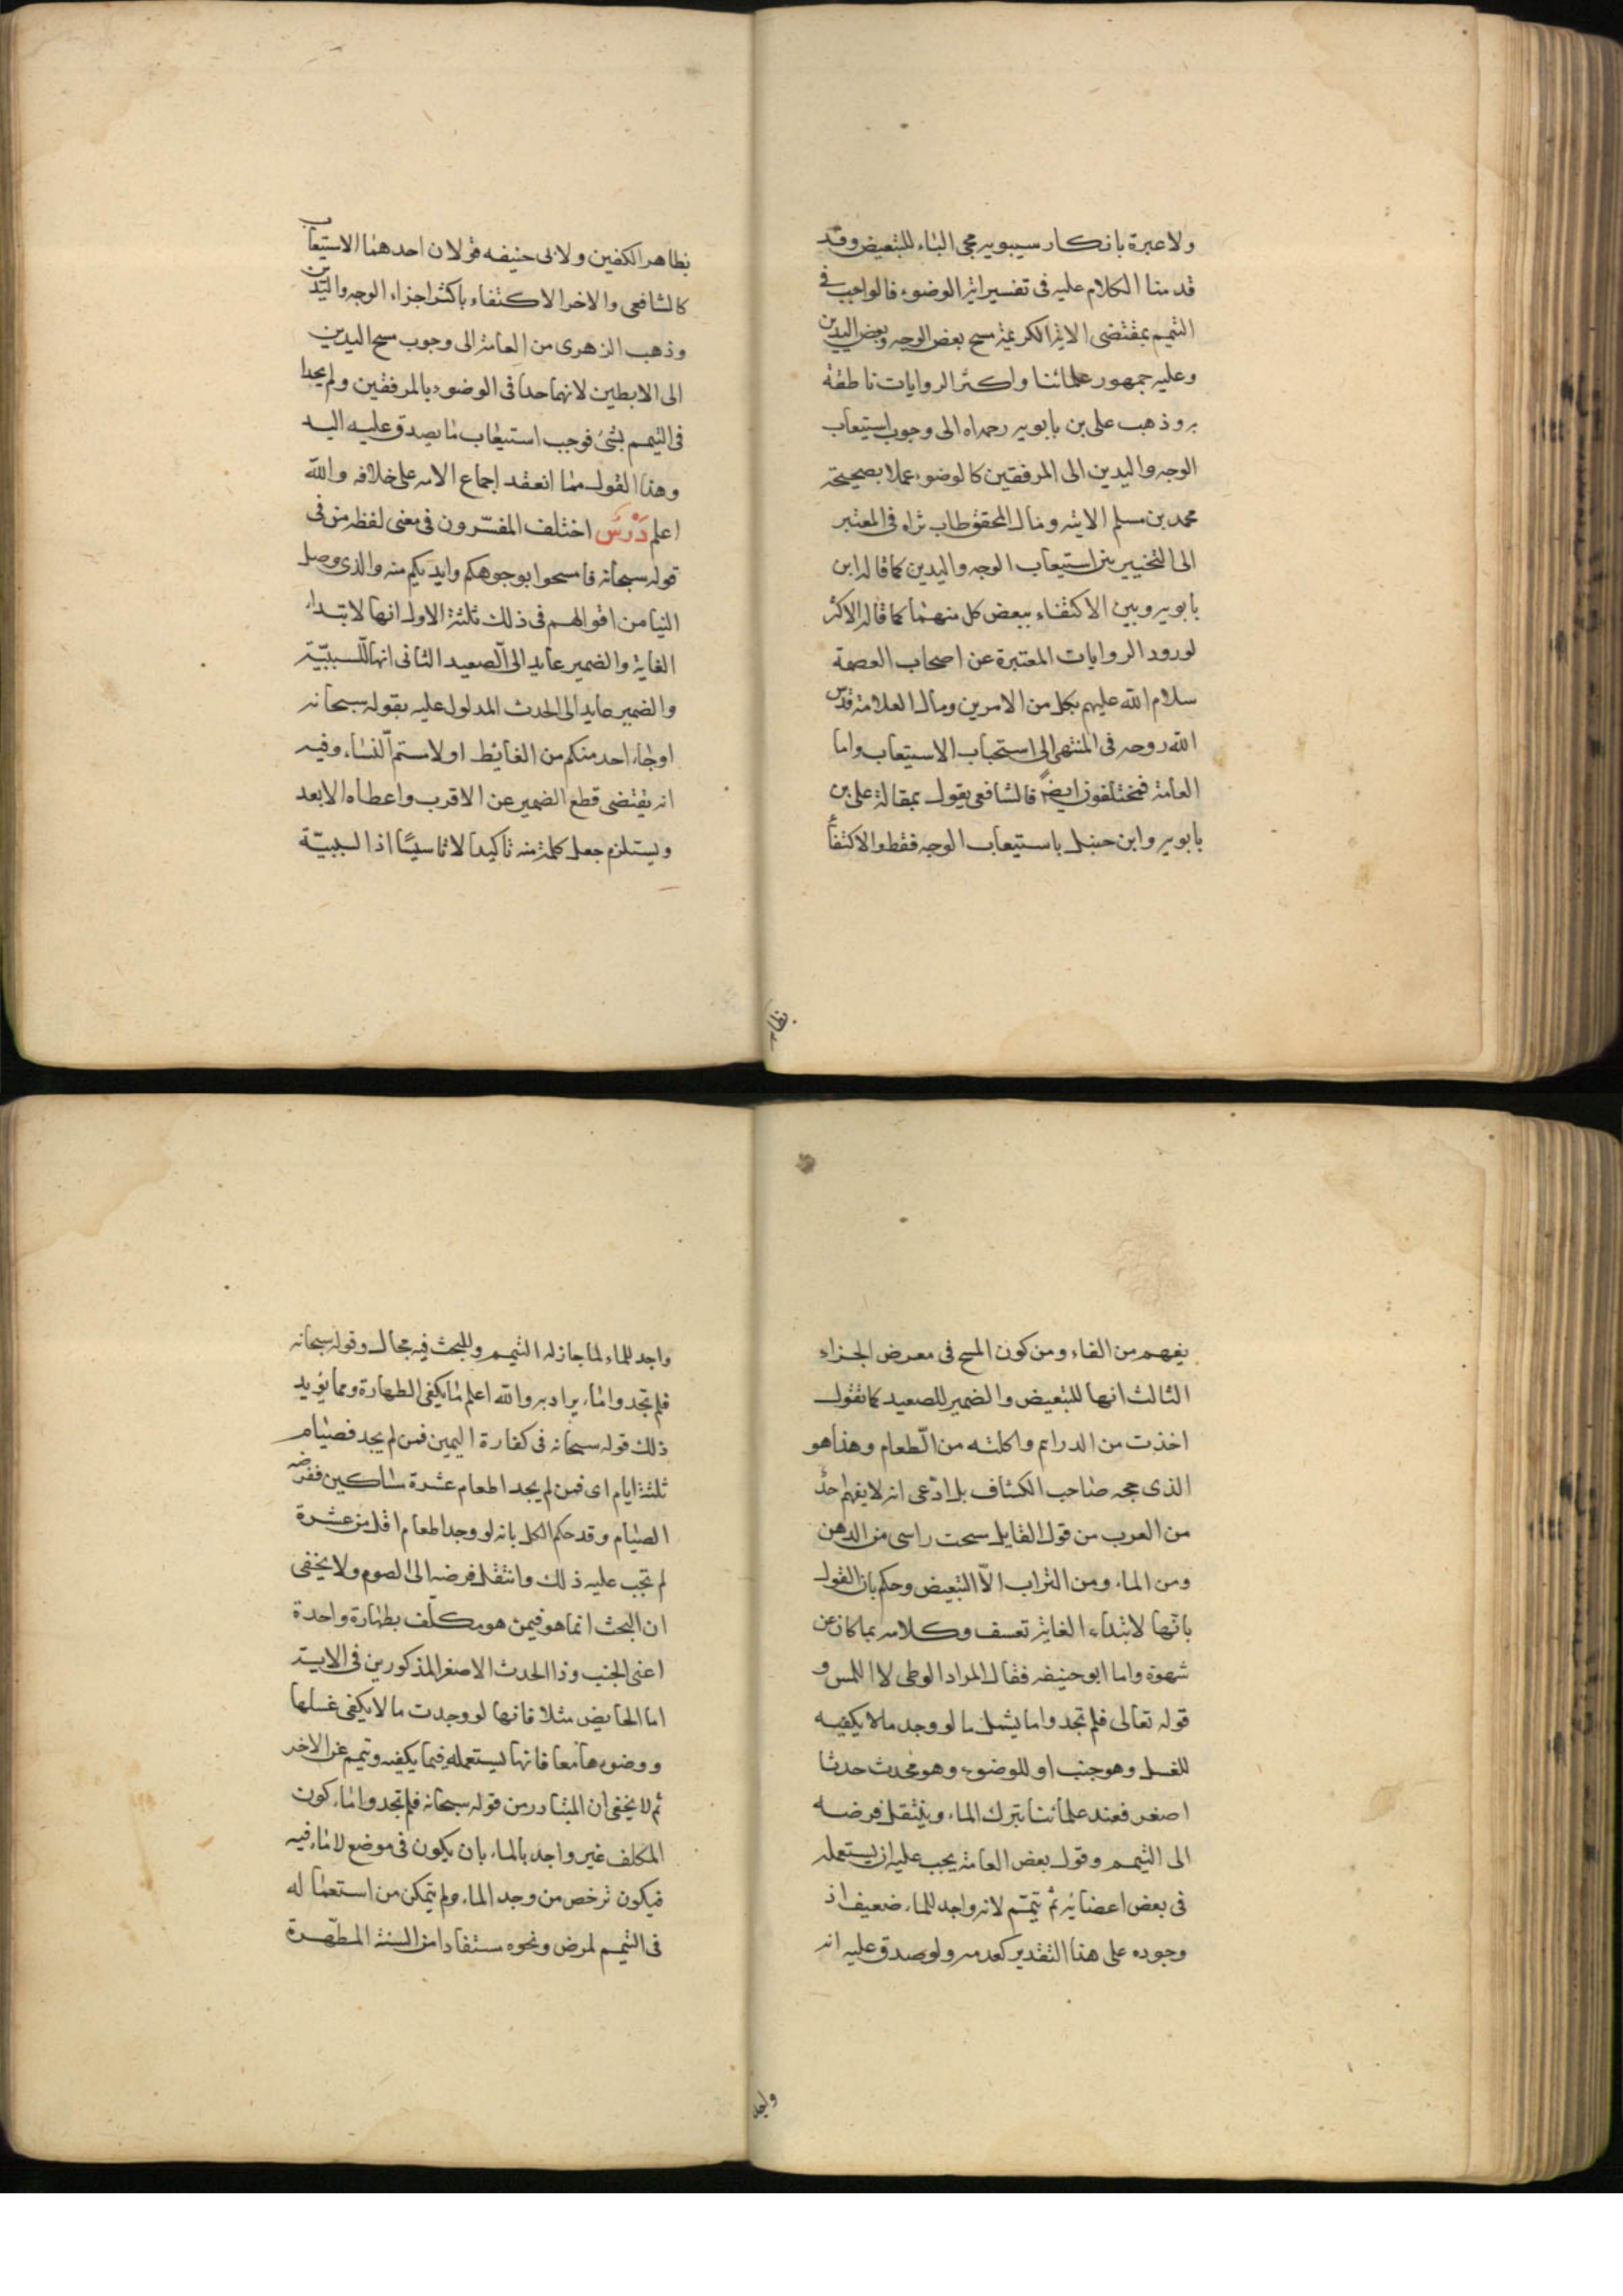 ولا عبرة بانكار سيبويه مجئ الباء للتبعيض وقد
قدمنا الكلام عليه فى تفسير اية الوضوء فالواجب فى
التيمم بمقتضى الاية الكريمة مسح بعض الوجه وبعض اليدين
وعليه جمهور علمائنا واكثر الروايات ناطقة
به وذهب على بن بابويه رحمه الله الى وجوب استيعاب
الوجه واليدين الى المرفقين كالوضوء عملا بصحيحة
محمد بن مسلم الاتية ومال المحقق طاب ثراه فى المعتبر
الى التخيير بين استيعاب الوجه واليدين كما قاله ابن
بابويه وبين الاكتفاء ببعض كل منهما كما قاله الاكثر
لورود الروايات المعتبرة عن اصحاب العصمة
سلام الله عليهم بكل من الامرين ومال العلامة قدس
الله روحه فى المنتهى الى استحباب الاستيعاب واما
العامة فمختلفون ايضا فالشافعى يقول بمقالة على بن
بابويه وابن حنبل باستيعاب الوجه فقط والاكتفاء
بظاهر
بظاهر الكفين ولابى حنيفه قولان احدهما الاستيعاب
كالشافعى والاخر الاكتفاء باكثر اجزاء الوجه واليدين
وذهب الزهرى من العامة الى وجوب مسح اليدين
الى الابطين لانهما حدا فى الوضوء بالمرفقين ولم يحدا
فى التيمم بشئ فوجب استيعاب ما يصدق عليه اليد
وهذا القول مما انعقد اجماع الامه على خلافه والله
اعلم دَرْسٌ اختلف المفسّرون فى معنى لفظة من فى
قوله سبحانه فامسحوا بوجوهكم وايديكم منه والذى وصل
الينا من اقوالهم فى ذلك ثلثة الاول انها لابتداء
الغاية والضمير عايد الى الصعيد الثانى انها للسببيّة
والضمير عايد الى الحدث المدلول عليه بقوله سبحانه
اوجاء احد منكم من الغايط اولامستم النساء وفيه
انه يقتضى قطع الضمير عن الاقرب واعطاه الابعد
ويستلزم جعل كلمة منه تاكيدا لا تاسيسًا اذ السببيّة
يفهم من الفاء ومن كون المسح فى معرض الجزاء
الثالث انها للتبعيض والضمير للصعيد كما تقول
اخذت من الدراهم واكلت من الطعام وهذا هو
الذى رجحه صاحب الكشاف بل ادعى انه لا يفهم احد
من العرب من قول القايل مسحت راسى من الدهن
ومن الماء ومن التراب الّا التبعيض وحكم بان القول
بانّها لابتداء الغاية تعسف وكلامه بما كان عن
شهوة واما ابو حنيفه فقال المراد الوطى لا اللمس و
قوله تعالى فلم تجدوا ما يشمل ما لو وجد ما لا يكفيه
للغسل وهو جنب او للوضوء وهو محدث حدثا
اصغر فعند علمائنا يترك الماء وينتقل فرضه
الى التيمم وقول بعض العامة يجب عليه ان يستعمله
فى بعض اعضائه ثم يتيمّم لانه واجد للماء ضعيف اذ
وجوده على هذا التقدير كعدمه ولو صدق عليه انه
واجد
واجد للماء لما جاز له التيمم وللبحث فيه مجال وقوله سبحانه
فلم تجدوا ماء يراد به والله اعلم ما يكفى الطهارة ومما يؤيد
ذلك قوله سبحانه فى كفارة اليمين فمن لم يجد فصيام
ثلثة ايام اى فمن لم يجد اطعام عشرة مساكين ففرضه
الصيام وقد حكم الكل بانه لو وجد اطعام اقل من عشرة
لم تجب عليه ذلك وانتقل فرضه الى الصوم ولا يخفى
ان البحث انما هو فيمن هو مكلّف بطهارة واحدة
اعنى الجنب وذا الحدث الاصغر المذكورين فى الاية
اما الحايض مثلا فانها لو وجدت ما لا يكفى غسلها
ووضوءها معا فانها تستعمله فيما يكفيه وتيمم عن الاخر
ثم لا يخفى ان المتبادر من قوله سبحانه فلم تجدوا ماء كون
المكلف غير واجد بالماء بان يكون فى موضع لا ماء فيه
فيكون ترخص من وجد الماء ولم يتمكن من استعماله
فى التيمم لمرض ونحوه مستفادا من السنة المطّهرة